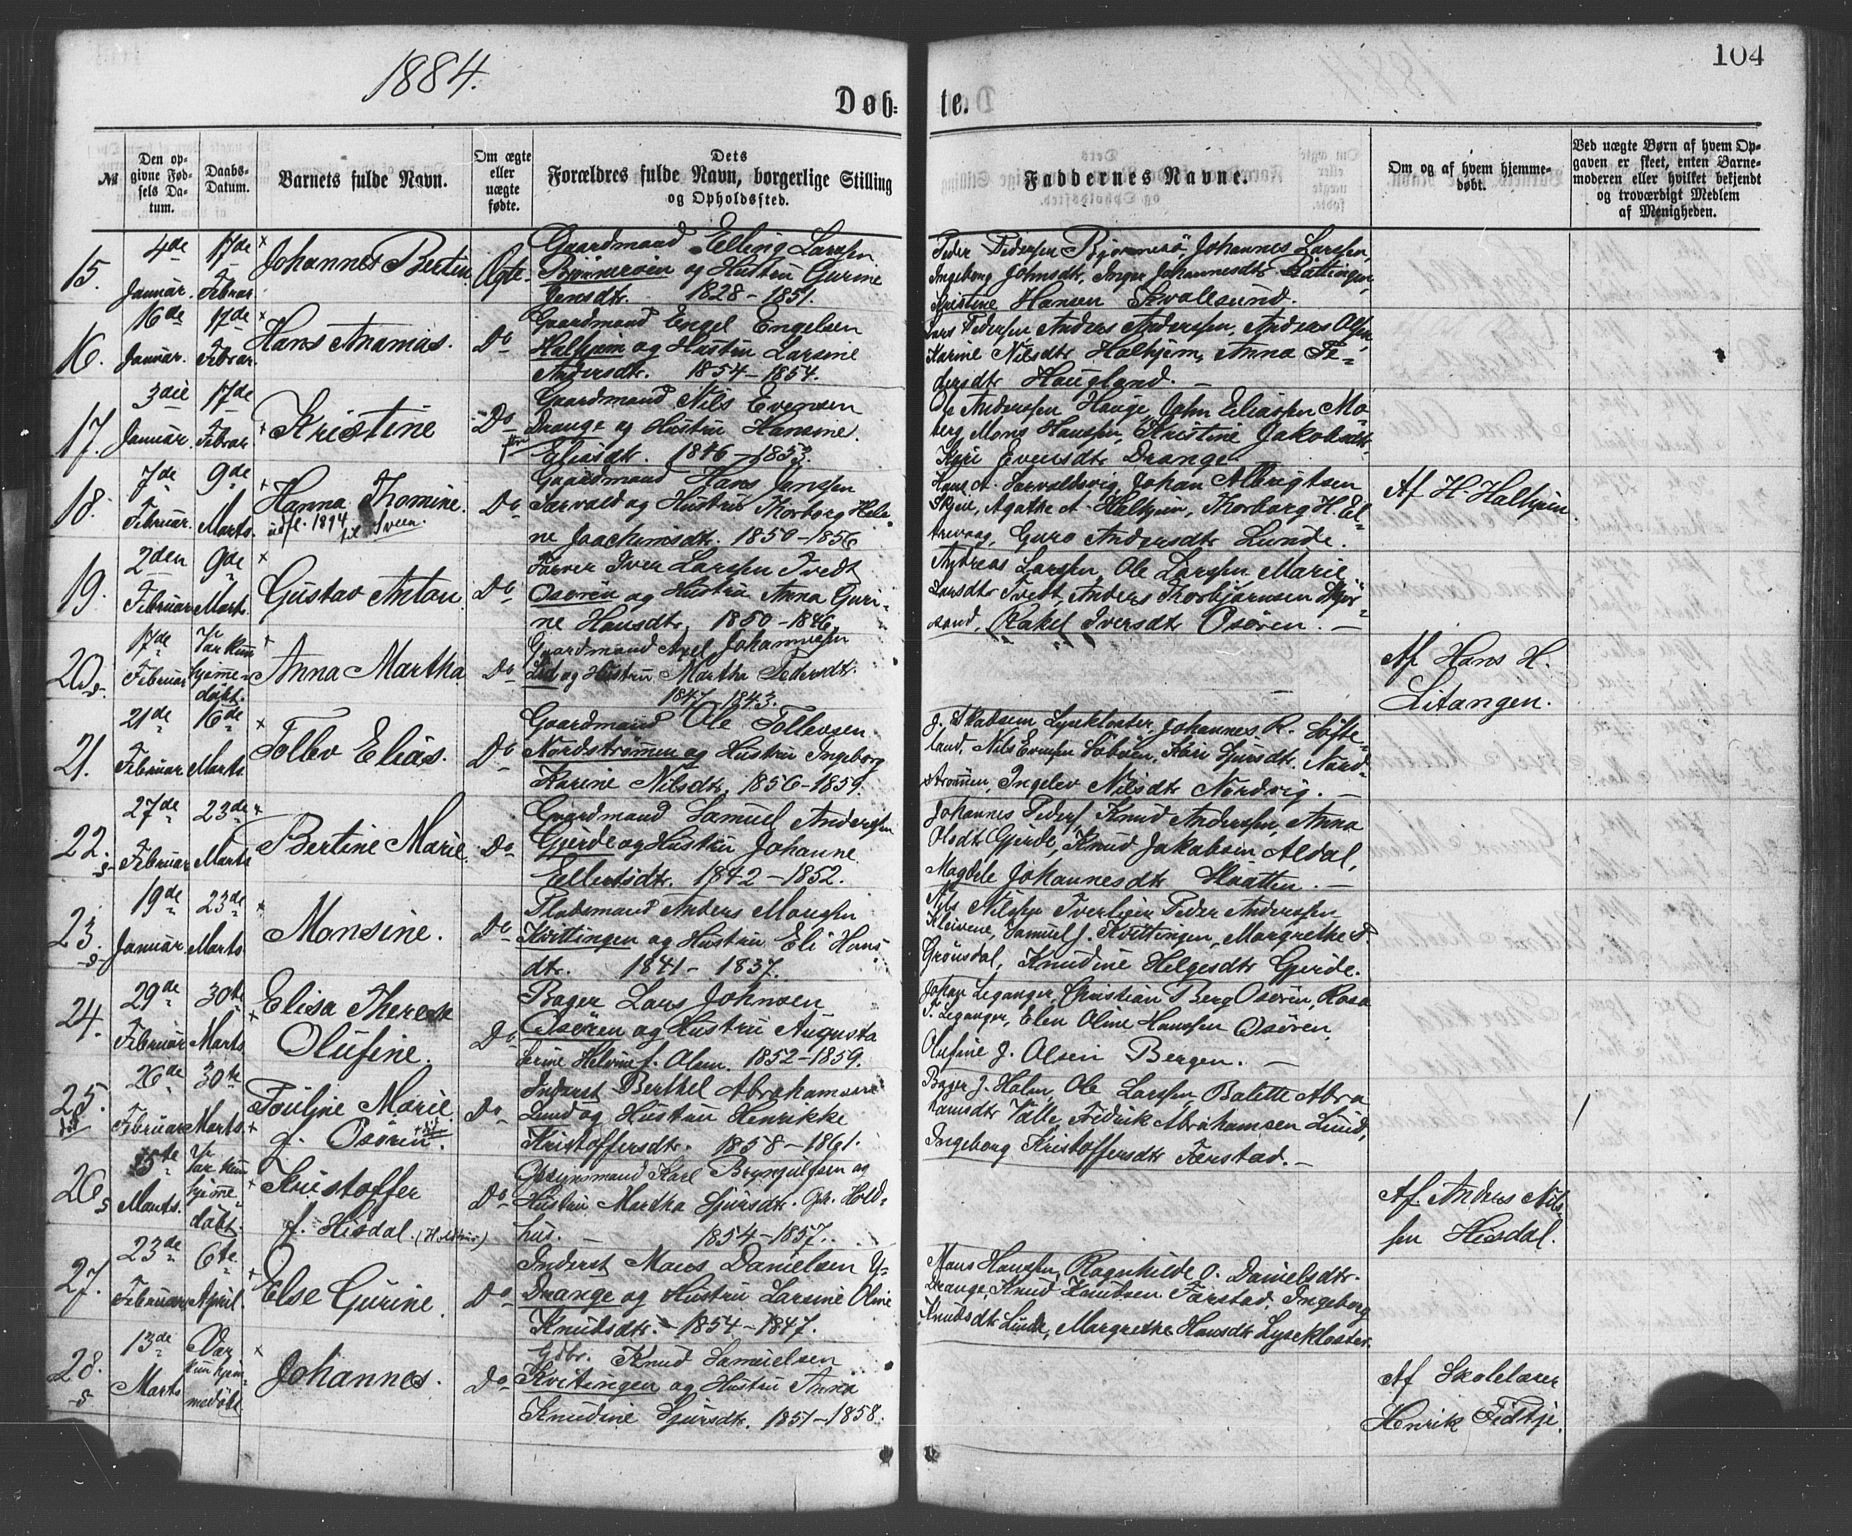 1884.
104
Døb-
te.
№
Den op-
givne Fød-
sels Da-
tum.
Daabs-
Datum.
Barnets fulde Navn.
Om ægte
eller
uægte
fødte.
Dets
Forældres fulde Navn, borgerlige Stilling
og Opholdssted.
Faddernes Navne.
Om og af hvem hjemme-
døbt.
Ved uægte Børn af hvem Op-
gaven er skeet, enten Barne-
moderen eller hvilket bekjendt
og troværdigt Medlem
af Menigheden.
15.
4de
Januar.
17de
Februar.
Johannes Bertin
Ægte
Gaardmand Elling Larssen
og Hustru Gurine
Jensdtr. 1828 - 1851.
Peder Pedersen Bjørnesø, Johannes Larssen,
Ingeborg Johnsdtr, Inger Johannesdtr
Kristine Hansen Kvalesund.
16.
16de
Januar.
17de
Februar.
Hans Ananias.
Do
Gaardmand Engel Engelsen
Halhjem og Hustru Larsine
Andersdtr. 1854 - 1854.
Lars Pedersen Anders Anderssen, Anders Olsen,
Karine Nilsdtr Halhjem, Anna Pe-
dersdtr Haugland. -
17.
3die
Januar.
17de
Februar.
Kristine
Do
Gaardmand Nils Evensen
Drange og Hustru Hansine
Eliasdtr. 1846 - 1853.
Ole Anderssen Hauge, John Eliassen Mo-
berg Mons Hanssen, Kristine Jakobsdtr,
Kari Evensdtr Drange
18.
7de
Februar.
9de
Marts.
Hanna Thomine.
udfl. 1894 til Sveen.
Do
Gaardmand Hans Jenssen
Sarvold og Hustru Thorborg Hele-
ne Joachimsdtr. 1850 - 1856
Hans A. Sarvoldsvig, Johan Albrigtsen
Skjeie, Agathe A. Halhjem, Thorborg H. El-
trevaag, Guro Andersdtr Lunde.
Af H. Halhjem.
19.
2den
Februar
9de
Marts.
Gustav Anton.
Do
Farver Iver Larssen Tvedt
Osøren og Hustru Anna Guri-
ne Hansdtr. 1850 - 1846
Andreas Larssen, Ole Larssen, Marie
Larsdtr Tvedt, Anders Thorbjørnsen
sand, Rakel Iversdtr Osøren. -
20.
d.
17de
Februar
Var kun
hjemme-
døbt.
Anna Martha.
Do
Gaardmand Axel Johannessen
Lid og Hustru Martha Pedersdtr.
1847 1843.
Af Hans H.
Litangen.
21.
21de
Februar
16de
Marts
Tollev Elias.
Do
Gaardmand Ole Tollevsen
Nordstrømen og Hustru Ingeborg
Karine Nilsdtr. 1856 - 1859.
J. Skabsem Lysekloster, Johannes R. Løfte-
land, Nils Evensen Søbøen, Kari Sjursdtr. Nord-
strømen, Ingelev Nilsdtr Nordvig. -
22.
s
27de
Februar
23de
Marts
Bertine Marie.
Do
Gaardmand Samuel Anderssen
Gjerde og Hustru Johanne
Ellertsdtr. 1842 - 1852.
Johannes Peders, Knud Anderssen, Anna
Olsdtr Gjerde, Knud Jakobsen Aldal,
Magdele Johannesdtr Skaatten. -
23.
d
19de
Januar.
23de
Marts.
Monsine.
Do
Pladsmand Anders Monssen
Kvittingen og Hustru Eli Hans-
dtr. 1841 - 1837.
Nils Nilssen Tverlien Peder Anderssen
Kleivene, Samuel J. Kvittingen, Margrethe P.
Grønsdal, Knudine Helgesdtr Gjerde.
24.
29de
Februar
30te
Marts.
Elisa Therese
Olufine.
Do
Bager Lars Johnsen
Osøren og Hustru Augusta
Olsen. 1852 - 1859.
Johan Leganger, Christian Berg Osøren, Rosa
P. Leganger, Elen Oline Hanssen Osøren,
Olufine J. Olsen Bergen. -
25.
26de
Februar
30te
Marts.
Pouline Marie.
f. Osøren
Do
Inderst Berthel Abrahamsen
Lund og Hustru Henrikke
Kristoffersdtr. 1858 - 1861.
Bager J. Holm, Ole Larssen, Balette Abra
hamsdtr Valle, Fredrik Abrahamsen Lund,
Ingeborg Kristoffersdtr Færstad. -
26.
s
15te
Marts.
Var kun
hjemme-
døbt.
Kristoffer
f. Hisdal. (Holdhus)
Do
Karl Brynjulfsen og
Hustru Martha Sjursdtr. Hold-
hus. 1854 - 1857.
Af Anders Nils-
sen Hisdal.
27.
23de
Februar
6te
April.
Else Gurine.
Do
Inderst Mons Danielsen Y-
Drange og Hustru Larsine Oline
Knudsdtr. - 1854 - 1847.
Mons Hanssen, Ragnhilde O. Danielsdtr.
Drange, Knud Knudsen Farstad, Ingeborg
Knudsdtr Lunde, Margrethe Hansdtr Lysekloster.
28.
s
13de
Marts
Var
kun hjem-
medøbt
Johannes.
Do
Gdbr. Knud Samuelsen
Kvitingen og Hustru Anna
Knudine Sjursdtr. 1851 - 1858.
Af Skolelærer
Henrik Tidtje.